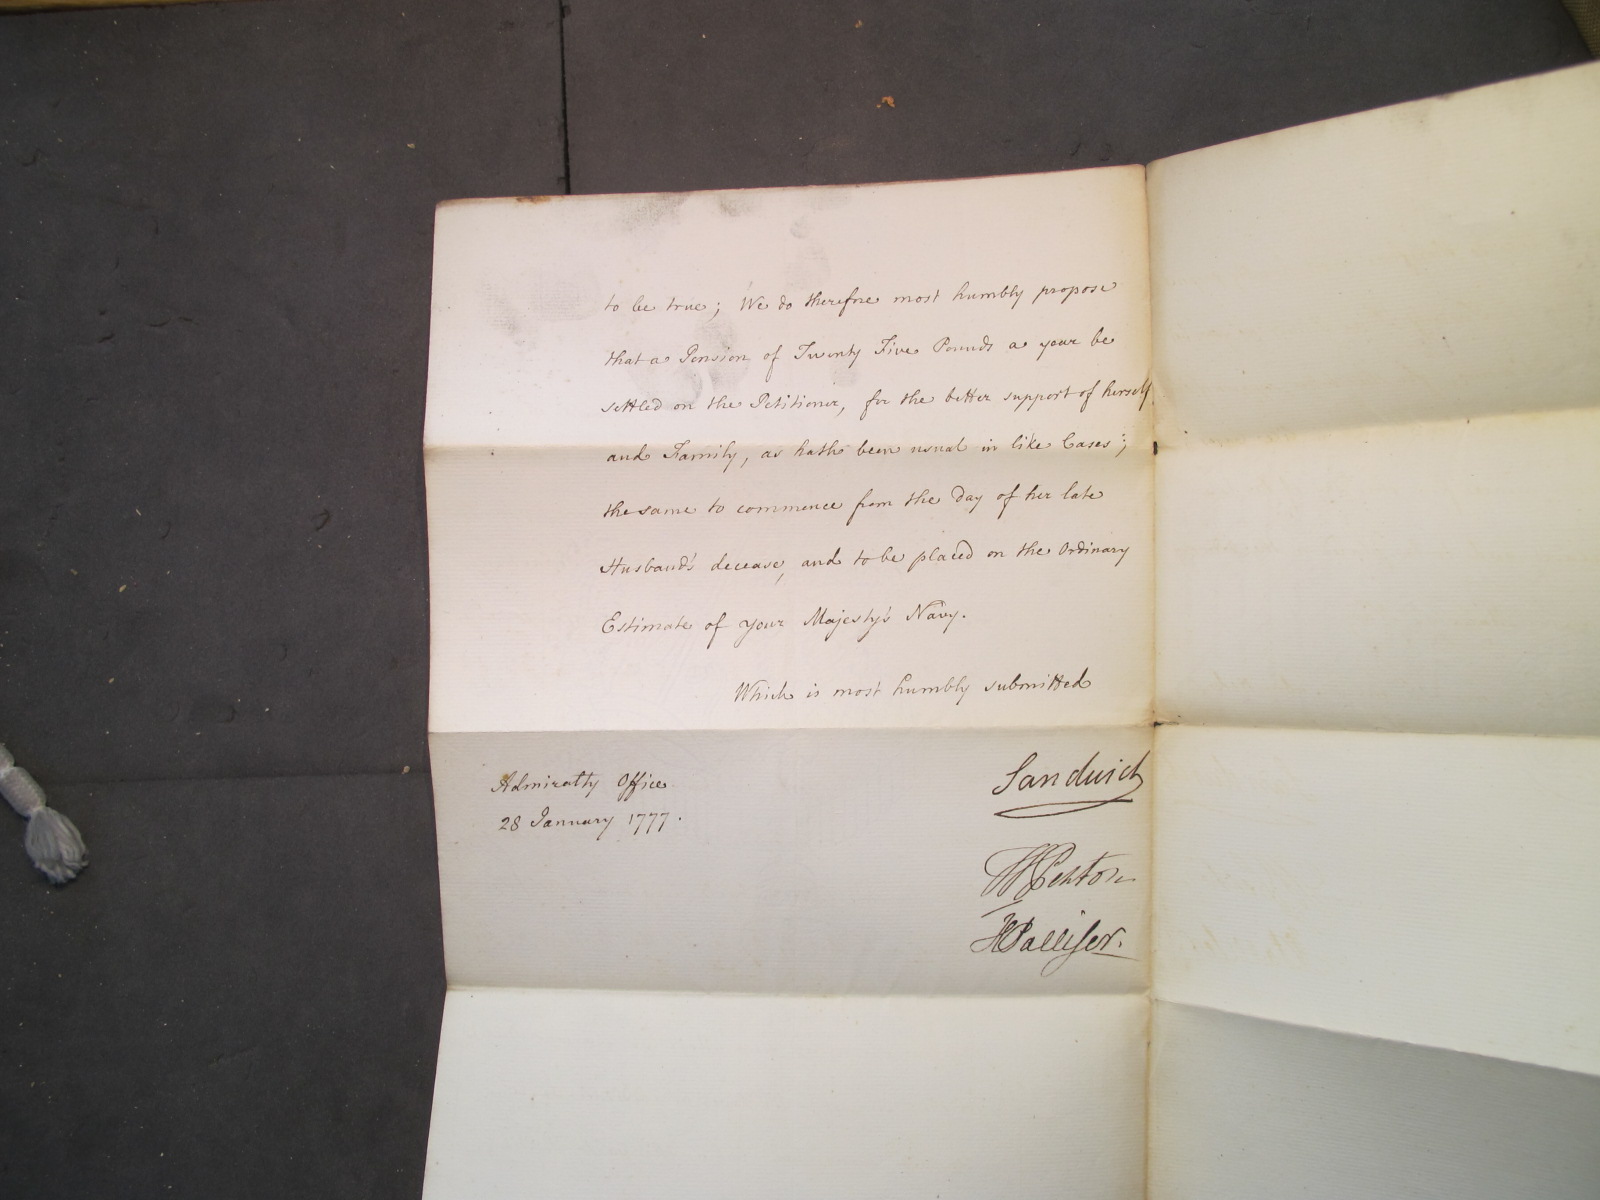 to be true; We do therefore most humbly propose
that a Pension of Twenty Five Pounds a year be
settled on the Petitioner, for the better support of herself
and Family, as hath been usual in like Cases;
the same to commence from the day of her late
Husband's decease, and to be placed on the Ordinary
Estimate of your Majesty's Navy.
Which is most humbly submitted
Admiralty Office
28 January 1777.
Sandwich
H Penton
H Palliser.